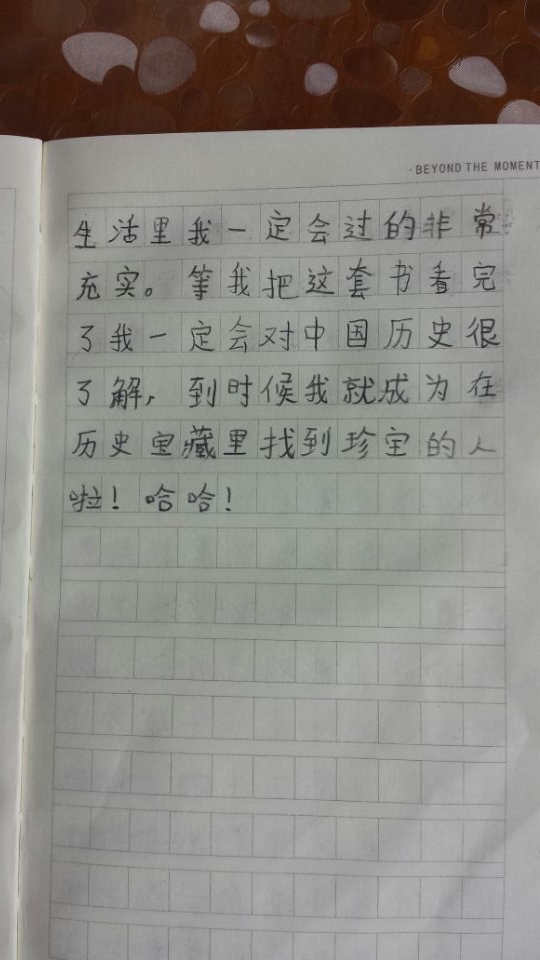 ·BEYOND THE MOMENT
生活里我一定会过的非常
充实。等我把这套书看完
了我一定会对中国历史很
了解,到时候我就成为在
历史宝藏里找到珍宝的人
啦!哈哈!